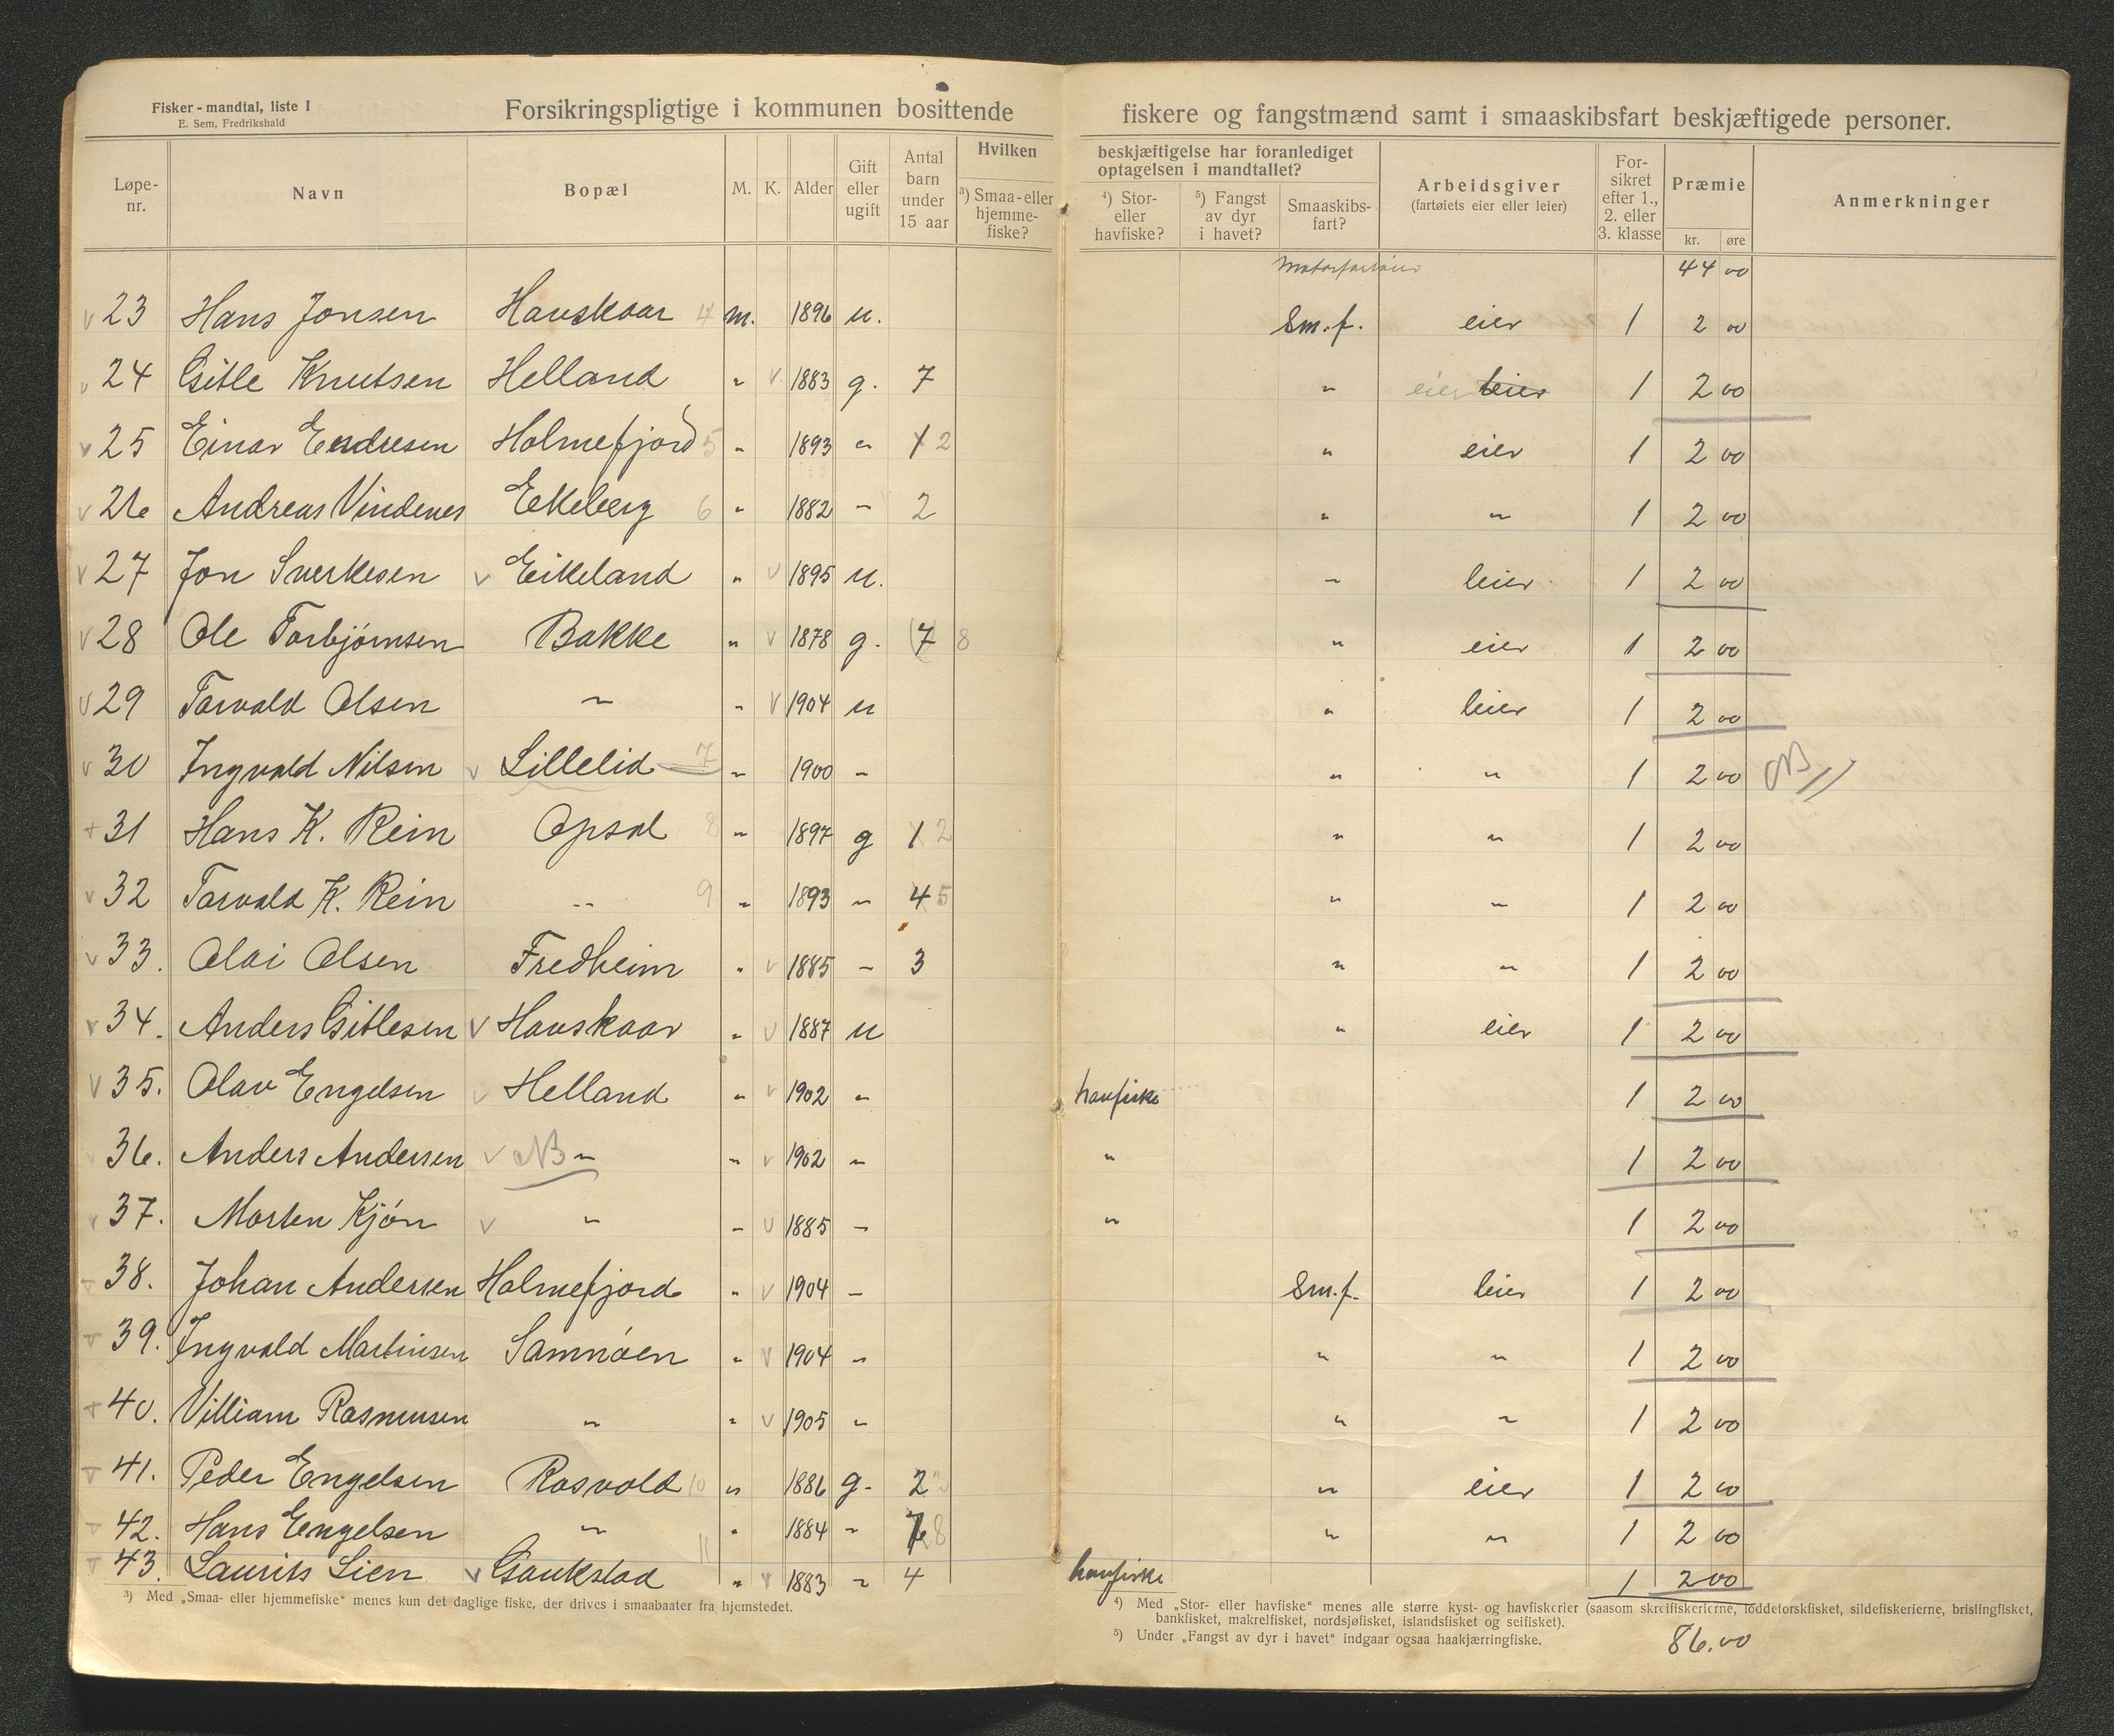 Fisker - mandtal, liste I
E. Sem, Fredrikshald
Forsikringspligtige i kommunen bosittende fiskere og fangstmænd samt i smaaskibsfart beskjæftigede personer.
Løpe-nr. Navn Bopæl M. K. Alder Gift eller ugift Antal barn under 15 aar Hvilken beskjæftigelse har foranlediget optagelsen i mandtallet? ³) Smaa- eller hjemme-fiske? ⁴) Stor- eller havfiske? ⁵) Fangst av dyr i havet? Smaaskibs-fart? Arbeidsgiver (fartøiets eier eller leier) For-sikret efter 1., 2. eller 3. klasse Præmie kr. øre Anmerkninger
44 00
v 23 Hans Jonsen Hauskaar 4 m. 1896 u. Sm.f. eier 1 2 00
v 24 Gitle Knutsen Helland " v 1883 g. 7 " eier leier 1 2 00
v 25 Einar Endresen Holmefjord 5 " 1893 " 1 2 " eier 1 2 00
v 26 Andreas Vindenes Eikeberg 6 " 1882 " 2 " " 1 2 00
v 27 Jon Sverkesen v Eikeland " v 1895 u. " leier 1 2 00
v 28 Ole Torbjørnsen Bakke " v 1878 g. (7) 8 " eier 1 2 00
v 29 Torvald Olsen " " v 1904 u " leier 1 2 00
v 30 Ingvald Nilsen v Lillelid 7 " 1900 " " " 1 2 00 NB
31 Hans K. Rein Opsal 8 " 1897 g 1 2 " " 1 2 00
v 32 Torvald K. Rein " 9 " 1893 " 4 5 " " 1 2 00
v 33. Olai Olsen Fredheim " v 1885 " 3 " " 1 2 00
v 34. Anders Gitlesen v Hauskaar " v 1887 u " eier 1 2 00
v 35. Olav Engelsen v Helland " v 1902 " havfiske 1 2 00
36. Anders Andersen v NB " " v 1902 " " 1 2 00
v 37. Morten Kjøn v " " v 1885 " " 1 2 00
38. Johan Andersen Holmefjord " v 1904 " Sm.f. leier 1 2 00
v 39. Ingvald Martinsen Samnøen " v 1904 " " " 1 2 00
40. Villiam Rasmussen " " v 1905 " " " 1 2 00
41. Peder Engelsen Rosvold 10 " 1886 g. 2 3 " eier 1 2 00
42. Hans Engelsen " 11 " 1884 " 8 " " 1 2 00
43. Laurits Lien v Gaukstad " v 1883 " 4 havfiske 1 2 00
³) Med „Smaa- eller hjemmefiske" menes kun det daglige fiske, der drives i smaabaater fra hjemstedet.
⁴) Med „Stor- eller havfiske" menes alle større kyst- og havfiskerier (saasom skreifiskerierne, loddetorskfisket, sildefiskerierne, brislingfisket,
bankfisket, makrelfisket, nordsjøfisket, islandsfisket og seifisket).
⁵) Under „Fangst av dyr i havet" indgaar ogsaa haakjærringfiske.
86.00